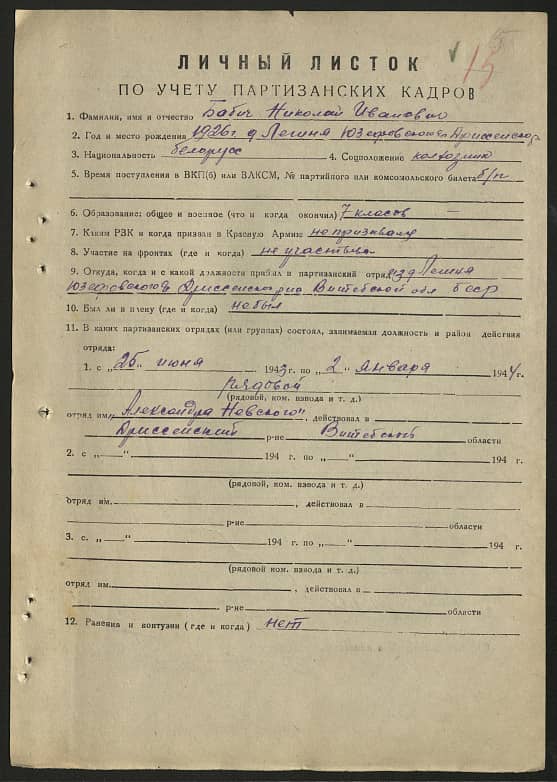 15
ЛИЧНЫЙ ЛИСТОК
ПО УЧЕТУ ПАРТИЗАНСКИХ КАДРОВ
1. Фамилия, имя и отчество Бабич Николай Иванович
2. Год и место рождения 1926г. д Легння Юзефовского Дриссенског
3. Национальность белорусс 4. Соцположение колхозник
5. Время поступления в ВКП(б) или ВЛКСМ, № партийного или комсомольского билета б/п
6. Образование: общее и военное (что и когда окончил) 7 класов —
7. Каким РЗК и когда призван в Красную Армию не призывался
8. Участие на фронтах (где и когда) не участвовал
9. Откуда, когда и с какой должности прибыл в партизанский отряд из д Легння
Юзефовского Дриссенск р-на Витебской обл БССР
10. Был ли в плену (где и когда) не был
11. В каких партизанских отрядах (или группах) состоял, занимаемая должность и район действия
отряда:
1. с „25" июня 1943 г. по „2" января 1944 г.
рядовой
(рядовой, ком. взвода и т. д.)
отряд им. „Александра Невского", действовал в
Дриссенский р-не Витебской области
2. с „—" 194 г. по „—" 194 г.
(рядовой, ком. взвода и т. д.)
отряд им. , действовал в
р-не области
3. с. „—" 194 г. по „—" 194 г.
(рядовой, ком. взвода и т. д.)
отряд им. , действовал в
р-не области
12. Ранения и контузии (где и когда) нет